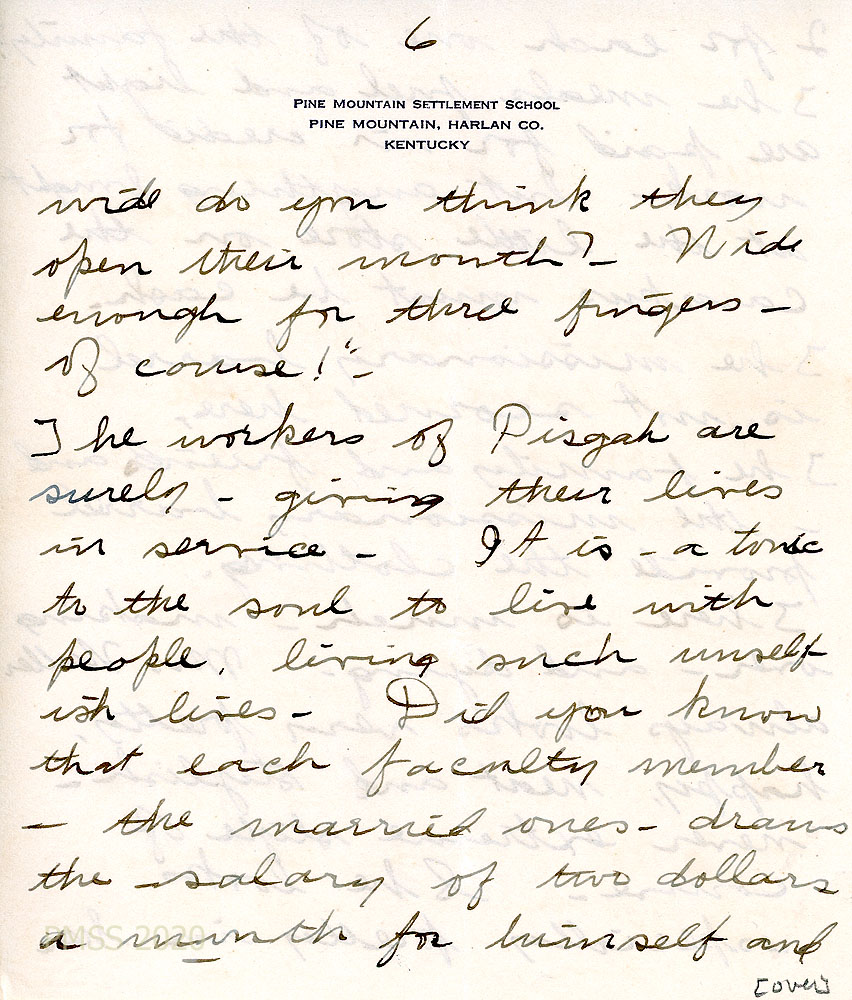 6
PINE MOUNTAIN SETTLEMENT SCHOOL
PINE MOUNTAIN, HARLAN CO.
KENTUCKY
wide do you think they
open their mouth? – Wide
enough for three fingers –
of course!" –
The workers of Pisgah are
surely – giving their lives
in service – It is – a tonic
to the soul to live with
people, living such unself-
ish lives – Did you know
that each faculty member
– the married ones – draws
the salary of two dollars
a month for himself and
[over]
PMSS 2020